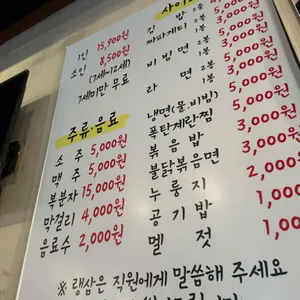 1인 15,900원
소인 8,500원
(7세~12세)
7세미만 무료
주류·음료
소주 5,000원
맥주 5,000원
복분자 15,000원
막걸리 4,000원
음료수 2,000원
사이
김밥 2줄
짜파게티 2봉 5,000원
1봉 3,000원
비빔면 2봉 5,000원
1봉 3,000원
라면 2봉 5,000원
1봉 3,000원
냉면(물·비빔) 5,000원
폭탄계란찜 5,000원
볶음밥 3,000원
불닭볶음면
누룽지 2,000
공기밥 1,000
멜젓 1,00
※ 랭삼은 직원에게 말씀해 주세요